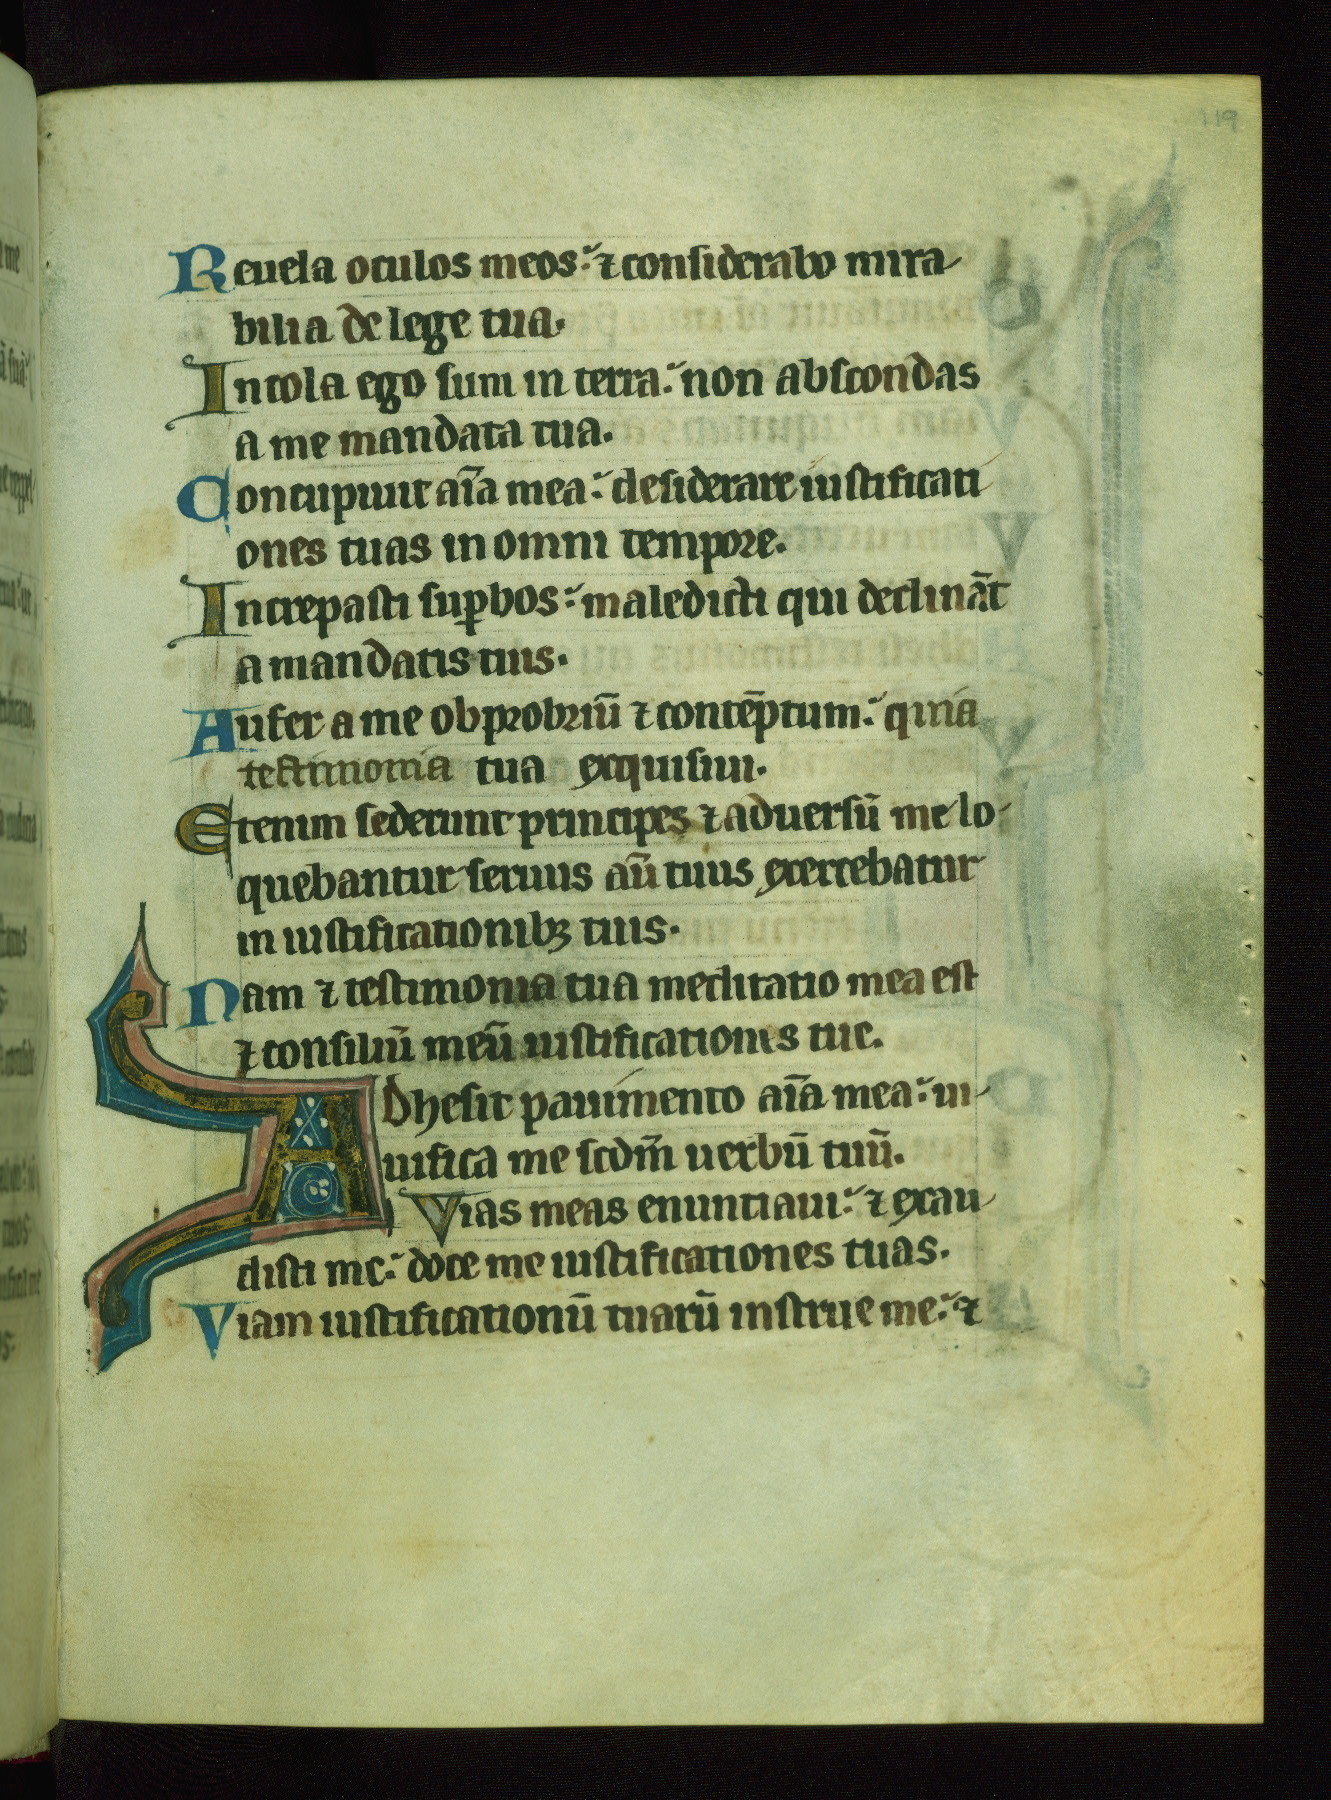 119
Reuela oculos meos: ⁊ considerabo mira
bilia de lege tua.
Incola ego sum in terra: non abscondas
a me mandata tua.
Concupiuit aĩa mea: desiderare iustificati
ones tuas in omni tempore.
Increpasti suꝑbos: maledicti qui declinãt
a mandatis tuis.
Aufer a me obprobriũ ⁊ contẽptum: quia
testimonia tua exquisiui.
Etenim sederunt principes ⁊ aduersũ me lo-
quebantur seruus aũ tuus exercebatur
in iustificationibꝫ tuis.
Nam ⁊ testimonia tua meditatio mea est
⁊ consiliũ meũ iustificationes tue.
Adhesit pauimento aĩa mea: ui-
uifica me scdm̃ uerbũ tuũ.
Vias meas enuntiaui: ⁊ exau
disti me: doce me iustificationes tuas.
Viam iustificationũ tuarũ instrue me: ⁊